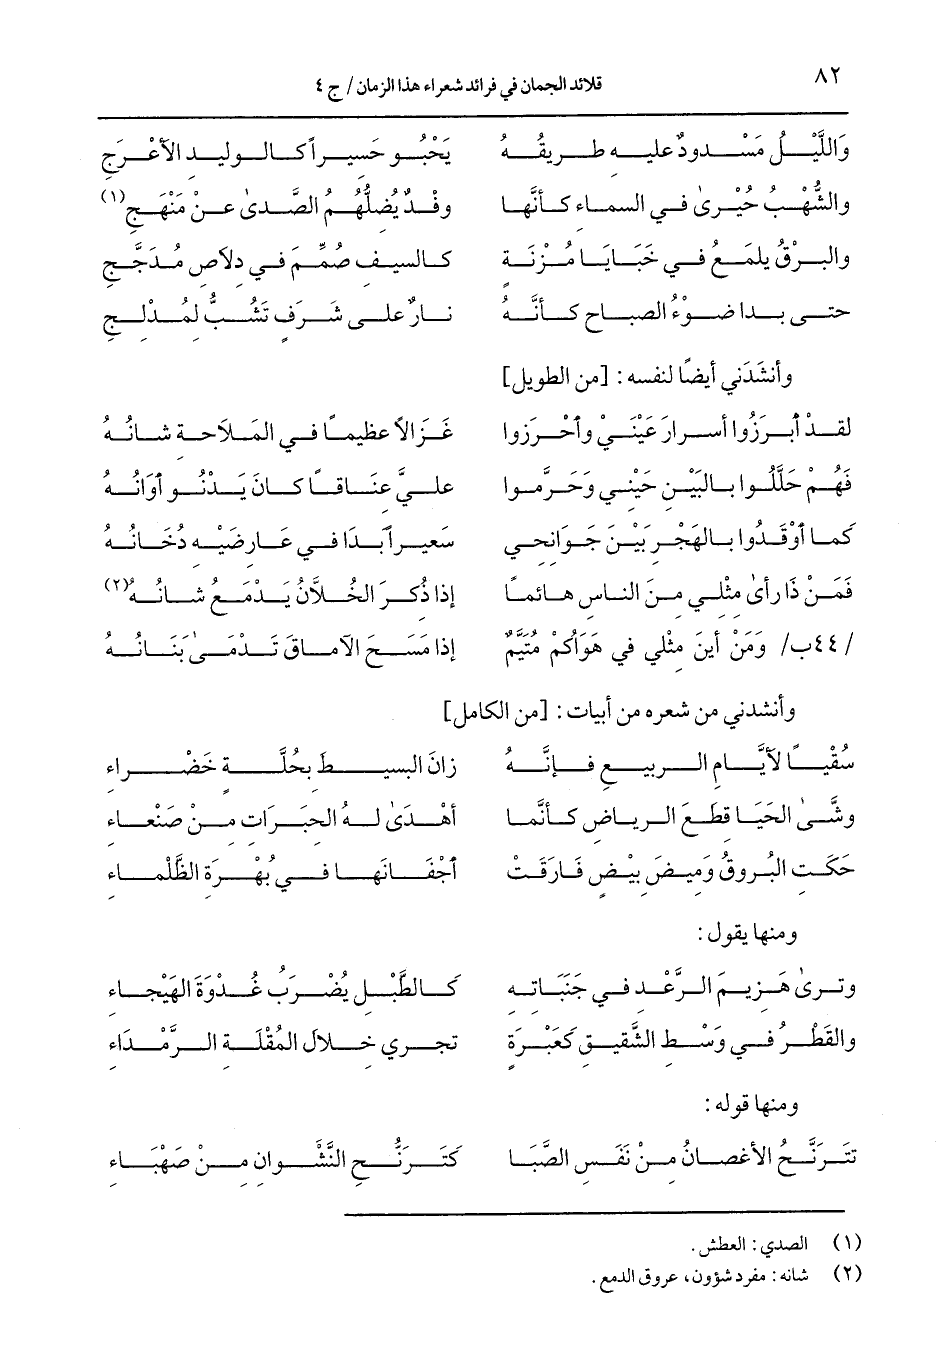 ٨٢
قلائد الجمان في فرائد شعراء هذا الزمان / ج ٤
وَاللَّيْلُ مَسْدودٌ عليه طريقُهُ يَحْبُو حَسِيراً كالوليدِ الأعْرَجِ
والشُّهْبُ حَيْرى في السماء كأنَّها وقدْ يُضلُّهُم الصَّدى عنْ مَنْهَجِ(١)
والبرْقُ يلمعُ في خَبَايَا مُزْنَةٍ كالسيفِ صُمِّمَ في دلاصِ مُدَجَّجِ
حتى بدا ضوْءُ الصباحِ كأنَّهُ نارٌ على شَرَفٍ تُشَبُّ لمُدْلِجِ
وأنشَدَني أيضًا لنفسه: [من الطويل]
لقدْ أبرَزُوا أسرارَ عَيْنيْ وأحْرَزوا غَزالاً عظيماً في المَلاحةِ شانُهُ
فَهُمْ حَلَّلُوا بالبَيْنِ حَيْني وَحَرَّموا عليَّ عِنَاقاً كانَ يَدْنُو أوَانُهُ
كما أوْقَدُوا بالهَجْرِ بَيْنَ جَوَانحي سَعِيراً بَدَا في عَارضَيْهِ دُخَانُهُ
فَمَنْ ذَا رأىٰ مثْلي منَ الناسِ هائماً إذا ذُكرَ الخُلاَّنُ يَدْمَعُ شانُهُ(٢)
/٤٤ب/ وَمَنْ أينَ مثلي في هَوَاكُم مُتَيَّمٌ إذا مَسَحَ الآماقَ تَدْمَىٰ بَنَانُهُ
وأنشدني من شعره من أبيات: [من الكامل]
سُقْياً لأيَّامِ الربيعِ فإنَّهُ زانَ البسيطَ بحُلَّةٍ خَضْراءِ
وشَّىٰ الحَيَا قطَعَ الرياضِ كأنَّما أهْدَىٰ لهُ الحِبَراتِ منْ صَنْعاءِ
حَكَتِ البُروقُ وَميضَ بيْضٍ فارَقَتْ أجْفَانَها في بُهْرَةِ الظَّلْماءِ
ومنها يقول:
وترىٰ هَزيمَ الرَّعْدِ في جَنَبَاتِهِ كالطَّبْلِ يُضْرَبُ غُدْوَةَ الهَيْجاءِ
والقَطْرُ في وَسْطِ الشَّقيقِ كَعَبْرَةٍ تجري خلالَ المُقْلَةِ الرَّمْدَاءِ
ومنها قوله:
تَتَرنَّحُ الأغصانُ منْ نَفَسِ الصَّبَا كتَرَنُّحِ النَّشْوانِ منْ صَهْبَاءِ
(١) الصدي: العطش.
(٢) شانه: مفرد شؤون، عروق الدمع.